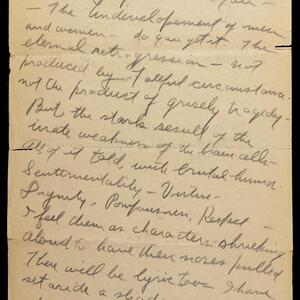 — The Undevelopement of men
and women — do you get it. The
eternal retrogression — not
produced by Fateful circumstance —
not the product of grisely tragedy —
But the stark result of the
inate weakness of the brain cells —
All of it told, with brutal humor.
Sentimentality — Virtue —
Dignity — Pompousness, Respect —
I feel them as characters shrieking
aloud to have their noses pulled
There will be lyric too — I have
set aside a